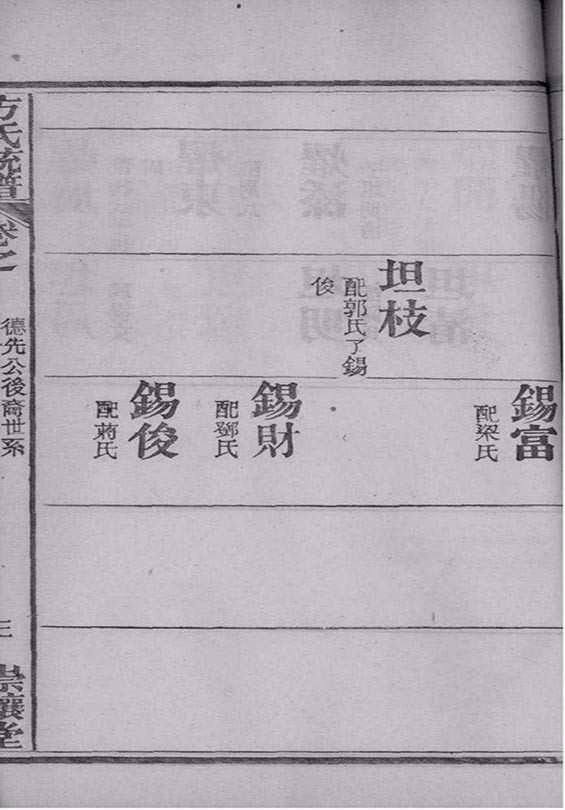 坦枝
配郭氏了錫
俊
錫富
配梁氏
錫財
配鄧氏
錫俊
配蔣氏
方氏統譜
卷之
德先公後裔世系
崇讓堂